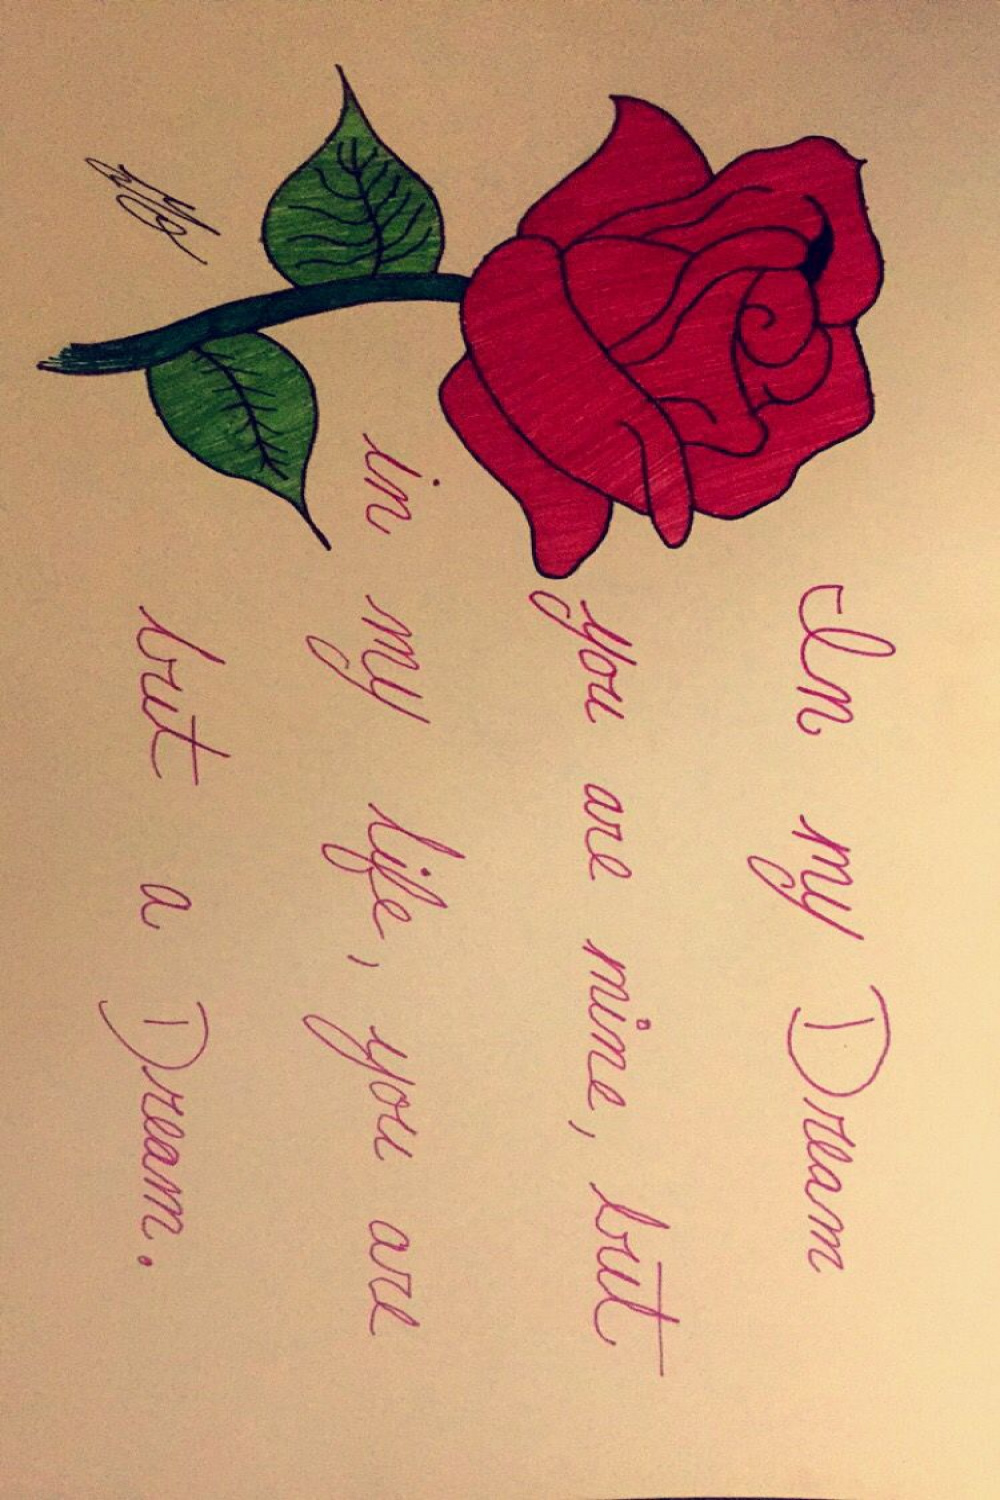 In my Dream
you are mine, but
in my life, you are
but a Dream.